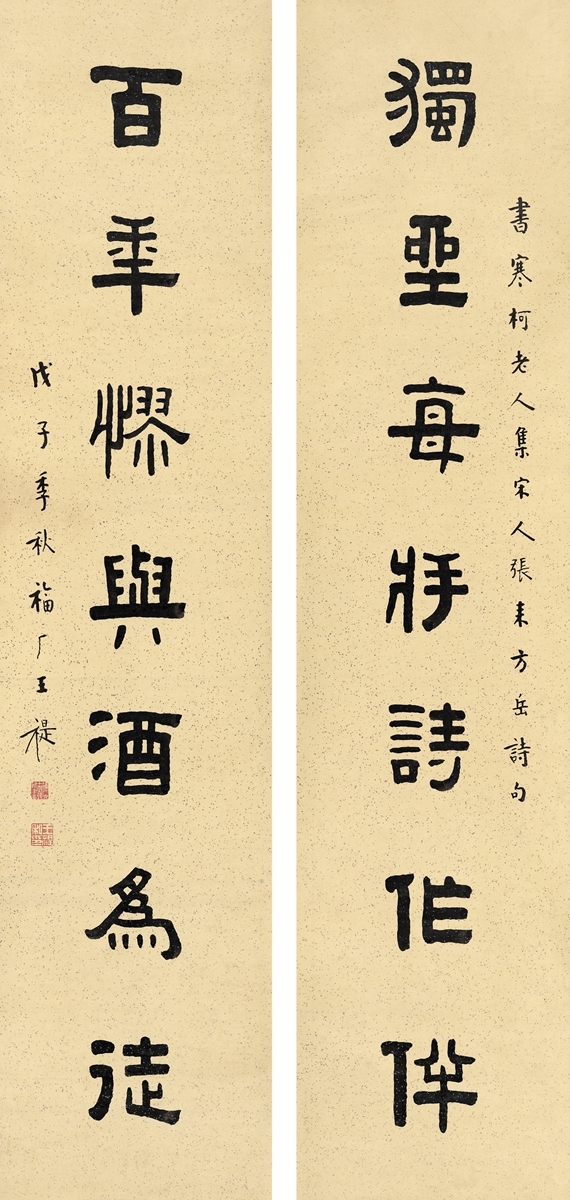 書寒柯老人集宋人張耒方岳詩句
獨坐每將詩作伴
百年憀與酒為徒
戊子季秋福厂王禔